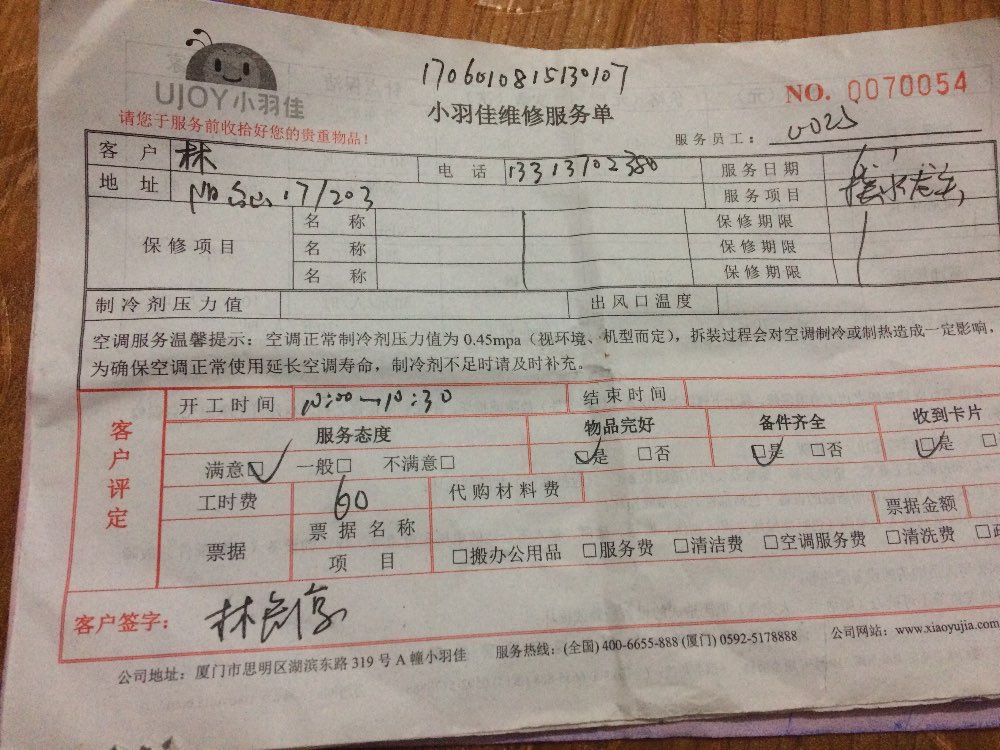 1706010815130107
UJOY小羽佳
小羽佳维修服务单
NO. 0070054
请您于服务前收拾好您的贵重物品！
服务员工：
客户 林 电话 13313702380 服务日期
地址 阳台山17/203 服务项目
保修项目 名称 保修期限
名称 保修期限
名称 保修期限
制冷剂压力值 出风口温度
空调服务温馨提示：空调正常制冷剂压力值为 0.45mpa（视环境、机型而定），拆装过程会对空调制冷或制热造成一定影响，
为确保空调正常使用延长空调寿命，制冷剂不足时请及时补充。
客户评定
开工时间 10:00—10:30 结束时间
服务态度 物品完好 备件齐全 收到卡片
满意☑ 一般□ 不满意□ ☑是 □否 ☑是 □否 ☑是 □
工时费 60 代购材料费
票据 票据名称 票据金额
项目 □搬办公用品 □服务费 □清洁费 □空调服务费 □清洗费 □
客户签字： 林
公司地址：厦门市思明区湖滨东路 319 号 A 幢小羽佳 服务热线：(全国) 400-6655-888 (厦门) 0592-5178888 公司网站：www.xiaoyujia.com